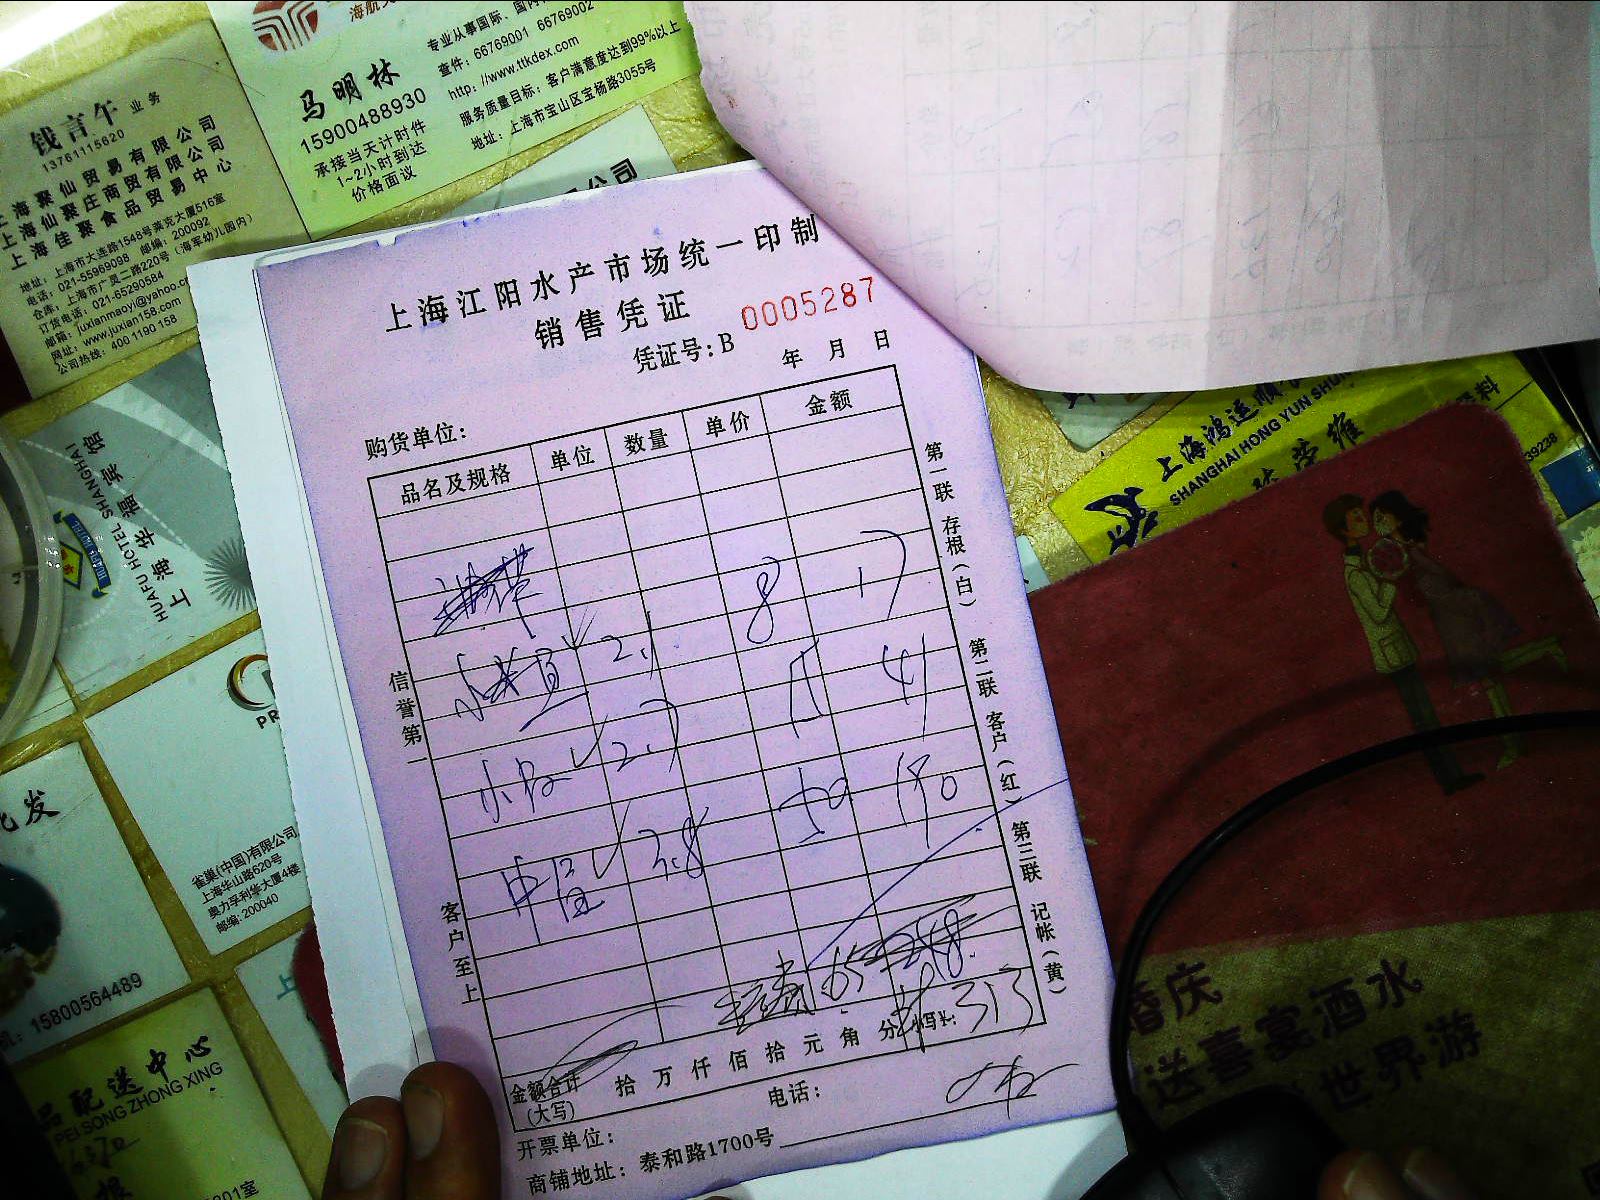 海航
专业从事国际、国内
查件：66769001 66769002
http：//www.ttkdex.com
服务质量目标：客户满意度达到99%以上
地址：上海市宝山区宝杨路3055号
马明林
15900488930
承接当天计时件
1~2小时到达
价格面议
钱言午 业务
13761115620
上海聚仙贸易有限公司
上海仙聚庄商贸有限公司
上海佳聚食品贸易中心
地址：上海市大连路1548号莱克大厦516室
电话：021-55969098 邮编：200092
仓库：上海市广灵二路220号（海军幼儿园内）
订货电话：021-65290584
邮箱：juxianmaoyi@yahoo.c
网址：www.juxian158.com
公司热线：400 1190 158
公司
上海江阳水产市场统一印制
销售凭证
0005287
凭证号：B
年 月 日
购货单位：
品名及规格 单位 数量 单价 金额
8 17
小黄鱼 2.1
41
2.7
50 190
3.8
65
313
金额合计（大写） 拾 万 仟 佰 拾 元 角 分 小写￥：
电话：
开票单位：
商铺地址：泰和路1700号
信誉第一
客户至上
第一联 存根（白） 第二联 客户（红） 第三联 记帐（黄）
上海华福宾馆
HUAFU HOTEL SHANGHAI
PR
雀巢(中国)有限公司
上海华山路620号
奥力孚利拿大厦4楼
邮编：200040
批发
机：15800564489
品配送中心
PEI SONG ZHONG XING
201室
上海鸿运顺
SHANGHAI HONG YUN SHUN
料
39238
婚庆
送喜宴酒水
世界游